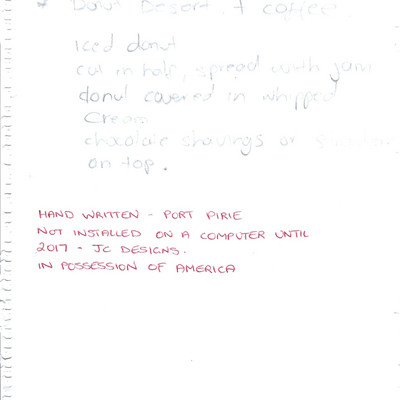 * Donut Desert. + coffee
iced donut
cut in half, spread with jam
donut covered in whipped
cream
chocolate shavings or
on top.
HAND WRITTEN - PORT PIRIE
NOT INSTALLED ON A COMPUTER UNTIL
2017 - JC DESIGNS.
IN POSSESSION OF AMERICA